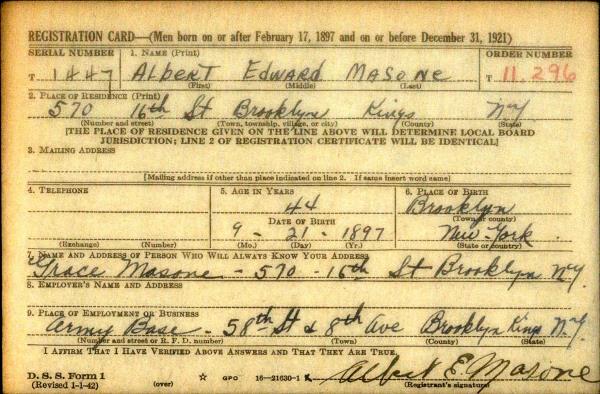 REGISTRATION CARD—(Men born on or after February 17, 1897 and on or before December 31, 1921)
SERIAL NUMBER 1. NAME (Print) ORDER NUMBER
T 1447 ALBERT EDWARD MASONE T 11,296
(First) (Middle) (Last)
2. PLACE OF RESIDENCE (Print)
570 16th St Brooklyn Kings NY
(Number and street) (Town, township, village, or city) (County) (State)
[THE PLACE OF RESIDENCE GIVEN ON THE LINE ABOVE WILL DETERMINE LOCAL BOARD
JURISDICTION; LINE 2 OF REGISTRATION CERTIFICATE WILL BE IDENTICAL]
3. MAILING ADDRESS
[Mailing address if other than place indicated on line 2. If same insert word same]
4. TELEPHONE 5. AGE IN YEARS 6. PLACE OF BIRTH
44 Brooklyn
DATE OF BIRTH (Town or county)
9 - 21 - 1897 New York
(Exchange) (Number) (Mo.) (Day) (Yr.) (State or country)
7. NAME AND ADDRESS OF PERSON WHO WILL ALWAYS KNOW YOUR ADDRESS
Grace Masone - 570 - 16th St Brooklyn NY
8. EMPLOYER'S NAME AND ADDRESS
9. PLACE OF EMPLOYMENT OR BUSINESS
Army Base - 58th St & 8th Ave Brooklyn Kings NY
(Number and street or R. F. D. number) (Town) (County) (State)
I AFFIRM THAT I HAVE VERIFIED ABOVE ANSWERS AND THAT THEY ARE TRUE.
D. S. S. Form 1
(Revised 1-1-42) (over) ☆ GPO 16—21630-1 Albert E. Masone
(Registrant's signature)